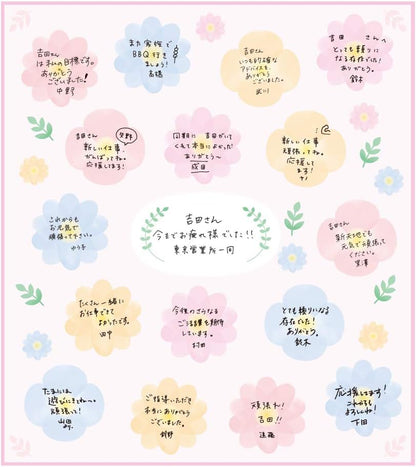 吉田さん
は私の目標です。
ありがとう
ございました!
中野
また家族で
BBQ行き
ましょう!
高橋
吉田さん
いつも的確な
アドバイスを
ありがとう
ございました。
武川
吉田 さんへ
とても頼りに
なる存在でした!
ありがとう。
鈴木
吉田さん
矢野
新しい仕事
がんばってね。
応援してます!
同期に 吉田がいて
くれて本当によかった
ありがとう〜
成田
新しい仕事
頑張ってね。
応援して
ます!
これからも
お元気で
頑張って下さい。
ゆう子
吉田さん
今までお疲れ様でした!!
東京営業所一同
吉田さん
新天地でも
元気で頑張って
ください。
宮澤
たくさん一緒に
お仕事できて
よかったです。
田中
今後のさらなる
ご活躍を期待
しています。
村田
とても頼りになる
存在でした!
ありがとう。
鈴木
たまには
遊びにきてね〜
頑張れ!
山田
ご指導いただき
本当にありがとう
ございました。
頑張れ!
吉田!!
遠藤
応援してます!
これからも
よろしくね!
下田